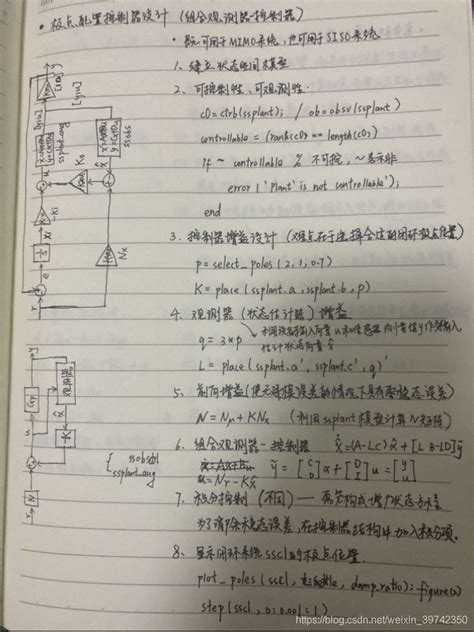 • 极点配置控制器设计 (组合观测器-控制器)
• 既可用于MIMO系统,也可用于SISO系统
1、建立状态空间模型
2、可控制性、可观测性
co = ctrb(ssplant); / ob = obsv(ssplant)
controllable = (rank(co) == length(co))
if ~ controllable % 不可控, ~表示非
error ('Plant is not controllable');
end
3、控制器增益设计 (难点在于选择合适的闭环极点位置)
p = select_poles(2, 1, 0.7)
K = place(ssplant.a, ssplant.b, p)
4、观测器 (状态估计器) 增益
q = 3*p
估计状态向量 x̂
L = place(ssplant.a', ssplant.c', q)'
5、前向增益 (使无稳态误差)
N = Nu + KNx (利用ssplant模型计算N矩阵)
6、组合观测器-控制器 x̂ = (A-LC) x̂ + [L B-LD] ȳ
u = Nr - Kx̂ ȳ = [C 0] x + [D I] u = [y u]
7、积分控制 (不同) — 需先构成增广状态方程
为了消除稳态误差,在控制器结构中加入积分项。
8、显示闭环系统 sscl 的极点位置
plot_poles (sscl, t_settle, damp_ratio); figure(2)
step (sscl, 0:0.001:1)
ssplant.ang
ssobs
Nx
Ki
Ko
r
e
u
y
N
K
Gp
观测器
ssobsctrl
ssplant.ang
https://blog.csdn.net/weixin_39742350